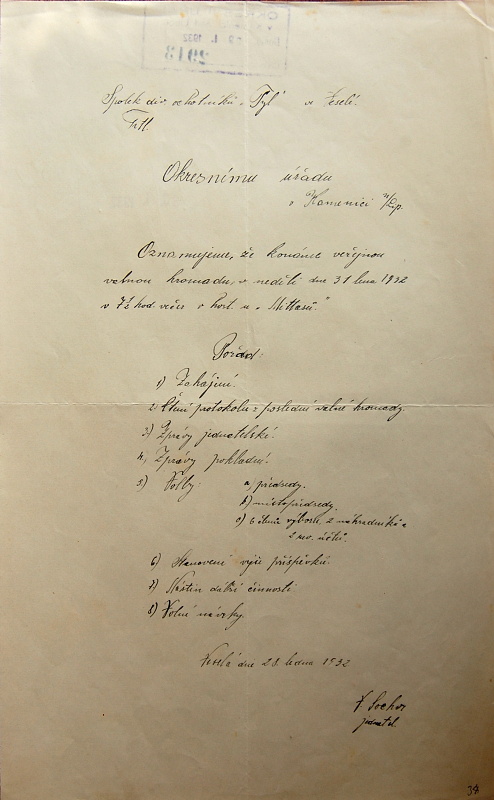 Spolek div. ochotníků „Tyl“ ve Veselé.
Okresnímu úřadu
v Kamenici n/Lip.
Oznamujeme, že konáme veřejnou
valnou hromadu, v neděli dne 31 ledna 1932
v 7½ hod. večer v host. u „Mittasů.“
Pořad:
1) Zahájení.
2) Čtení protokolu z poslední valné hromady.
3) Zprávy jednatelské.
4, Zprávy pokladní.
5) Volby: a, předsedy.
b) místopředsedy.
c) 6 členů výboru, 2 náhradníků a
2 rev. účtů.
6) Stanovení výše příspěvků.
7) Nástin další činnosti
8) Volné návrhy.
Veselá dne 28 ledna 1932
V. Sochor
jednatel.
34